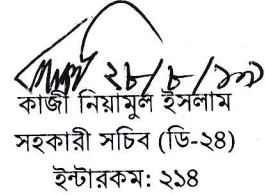 ২৮/৮/১৯
কাজী নিয়ামুল ইসলাম
সহকারী সচিব (ডি-২৪)
ইন্টারকম: ২১৪